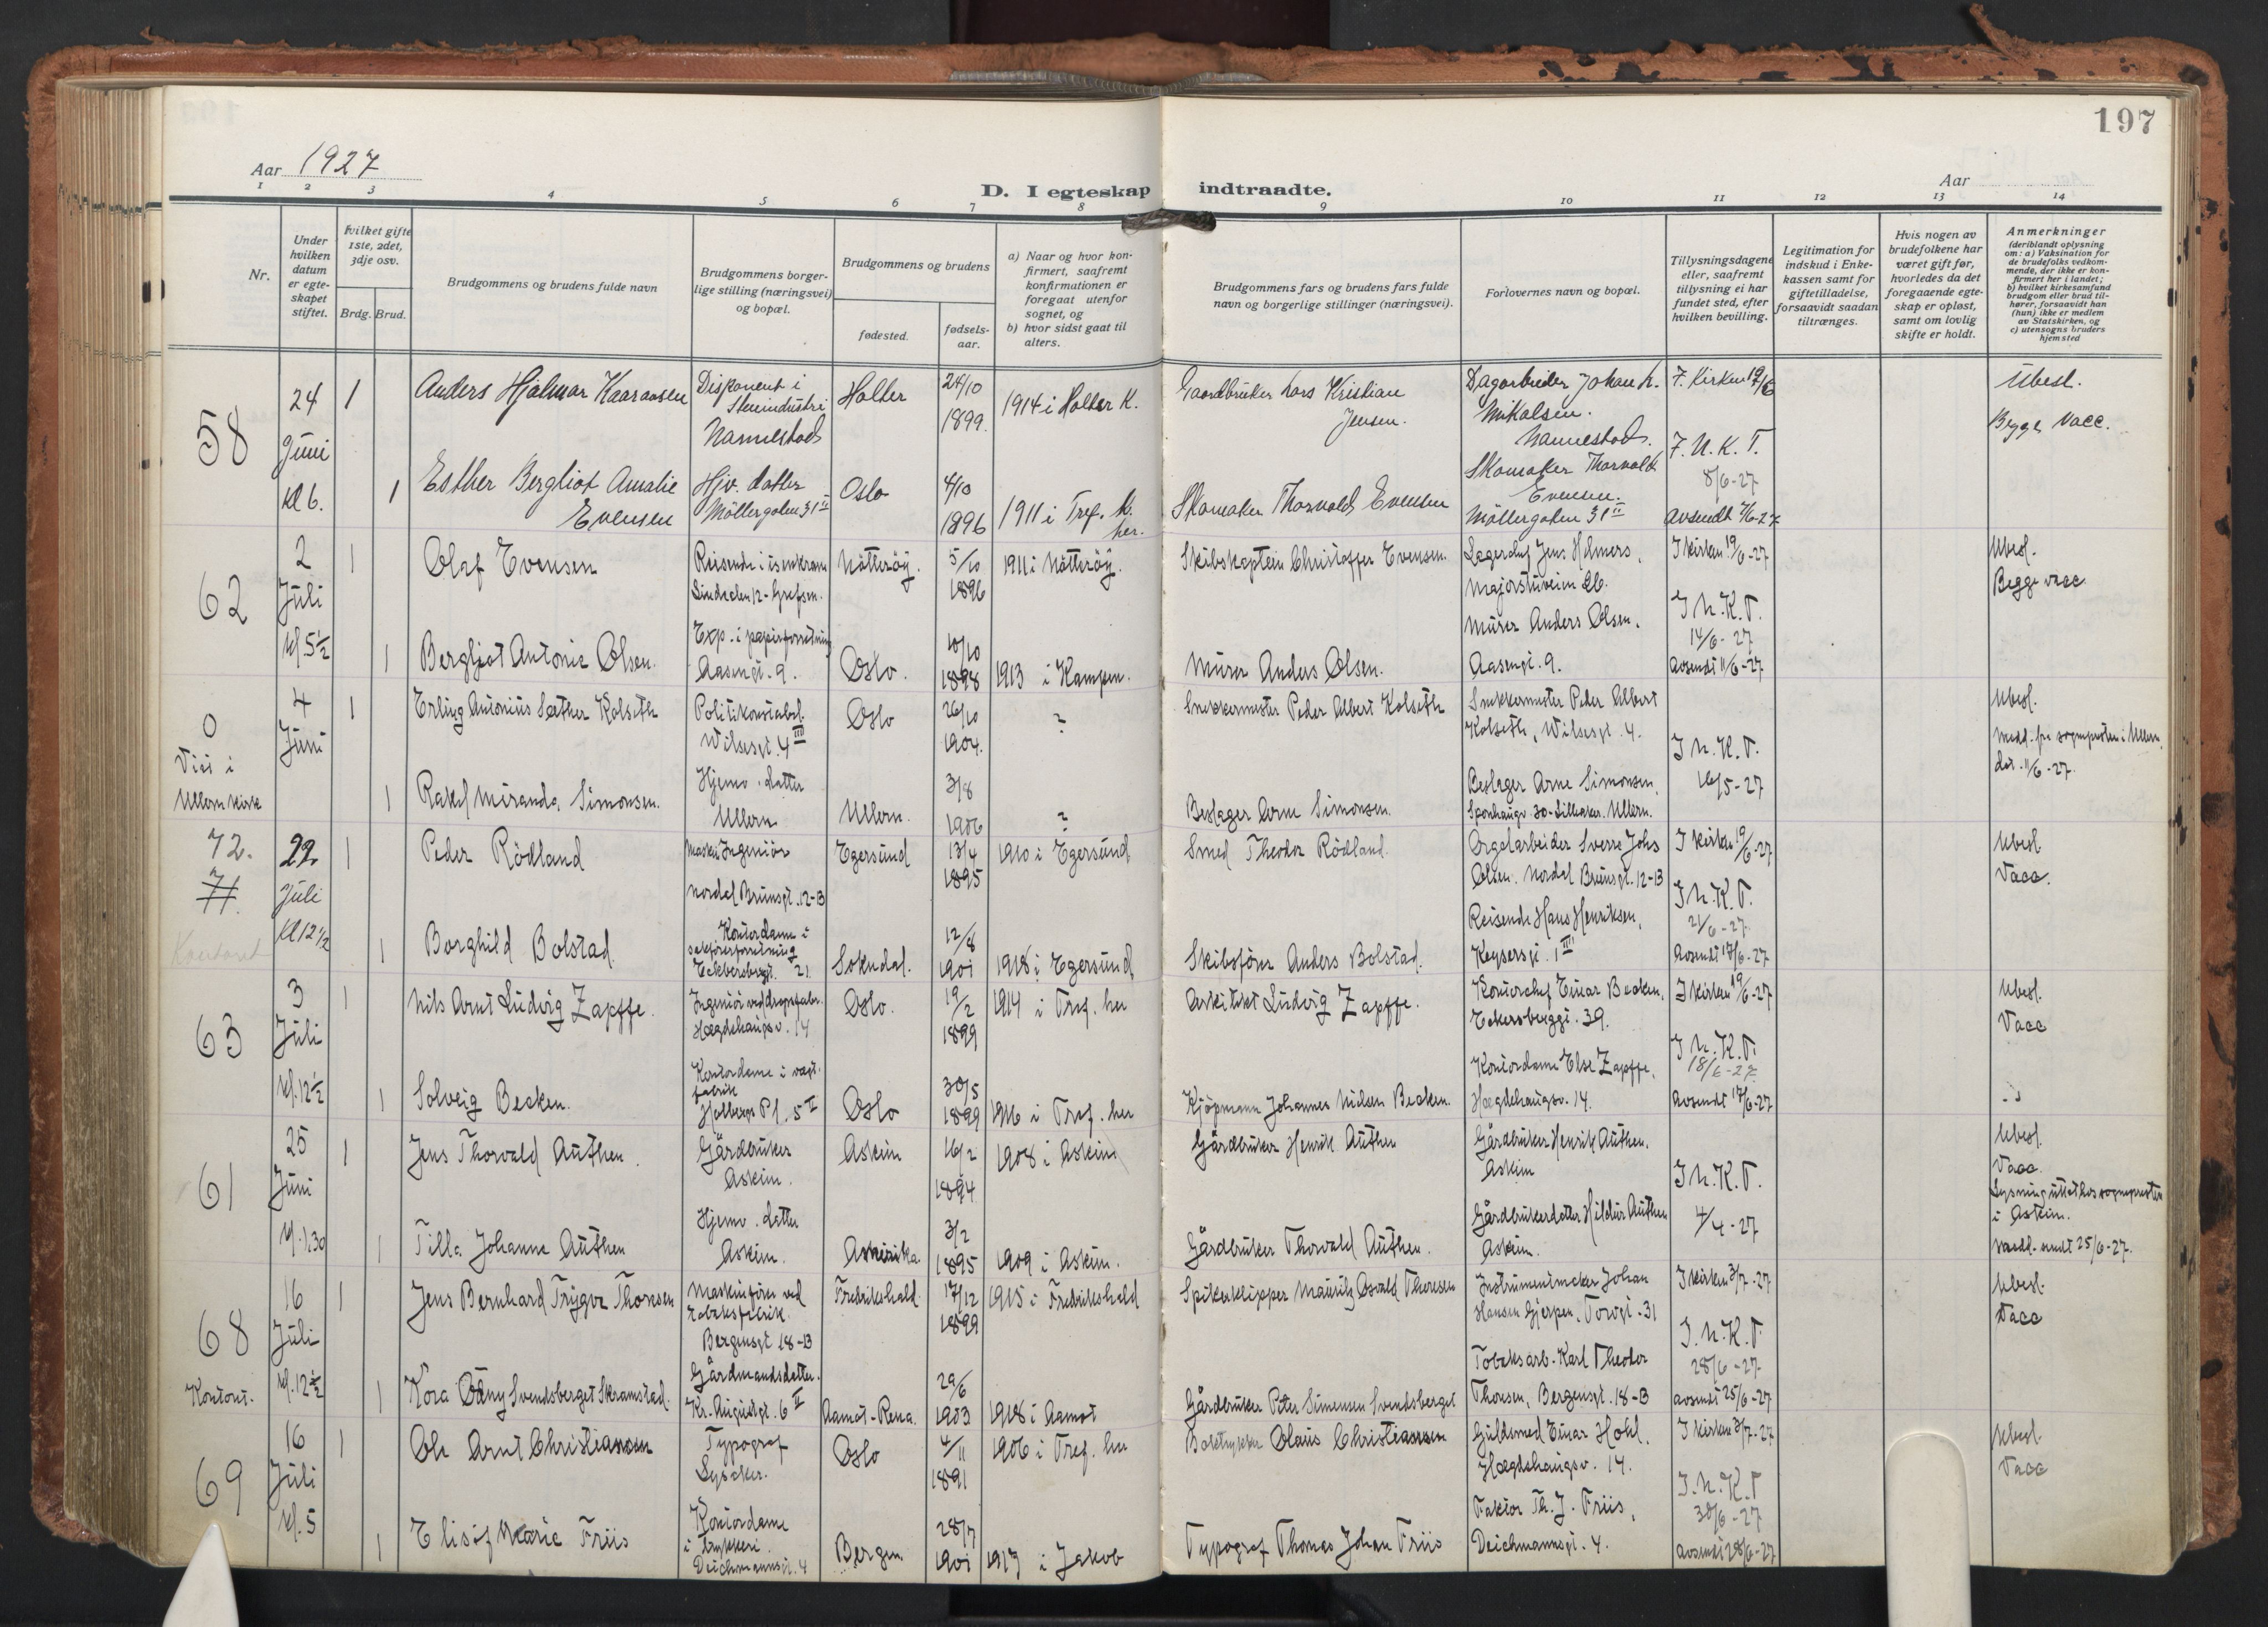 197
Aar 1927
D. I egteskap indtraadte.
Aar
1 2 3 4 5 6 7 8 9 10 11 12 13 14
Nr.
Under hvilken datum er egteskapet stiftet.
Hvilket gifte 1ste, 2det, 3dje osv.
Brdg. Brud.
Brudgommens og brudens fulde navn
Brudgommens borgerlige stilling (næringsvei) og bopæl.
Brudgommens og brudens
fødested.
fødselsaar.
a) Naar og hvor konfirmert, saafremt konfirmationen er foregaat utenfor sognet, og
b) hvor sidst gaat til alters.
Brudgommens fars og brudens fars fulde navn og borgerlige stillinger (næringsvei).
Forlovernes navn og bopæl.
Tillysningsdagene eller, saafremt tillysning ei har fundet sted, efter hvilken bevilling.
Legitimation for indskud i Enkekassen samt for giftetilladelse, forsaavidt saadan tiltrænges.
Hvis nogen av brudefolkene har været gift før, hvorledes da det foregaaende egteskap er opløst, samt om lovlig skifte er holdt.
Anmerkninger (deriblandt oplysning om: a) Vaksination for de brudefolks vedkommende, der ikke er konfirmert her i landet; b) hvilket kirkesamfund brudgom eller brud tilhører, forsaavidt han (hun) ikke er medlem av Statskirken, og c) utensogns bruders hjemsted
58
24 Juni Kl 6.
1 Anders Hjalmar Kaaraasen
Disponent i Stenindustri Nannestad
Holter
24/10 1899.
1914 i Holter K.
Gaardbruker Lars Kristian Jensen.
Dagarbeider Johan L. Mikalsen. Nannestad.
F. Kirken 19/6
Ubesl.
Begge vacc.
1 Esther Bergliot Amalie Evensen
Hjv. datter Möllergaten 31 II
Oslo
4/10 1896
1911 i Tref. K. her.
Skomaker Thorvald Evensen
Skomaker Thorvald Evensen. Möllergaten 31 II
F. N. K. T. 8/6-27
Avsendt 7/6-27
62
2 Juli kl. 5 1/2
1 Olaf Evensen
Reisende i isenkram Lindealen 12 - Grefsen.
Nötteröy.
5/10 1896
1911 i Nötteröy.
Skibskaptein Christoffer Evensen.
Lagerchef Jens Helmers, Majorstuveien 26.
I kirken 19/6-27
Ubesl.
Begge vacc
1 Bergljot Antonie Olsen.
Exp. i papirforretning Aasengt. 9.
Oslo.
10/10 1898
1913 i Kampen.
Murer Anders Olsen.
Murer Anders Olsen, Aasengt. 9.
I N. K. T. 14/6-27
Avsendt 11/6-27
0
Viet i Ullern kirke
4 Juni
1 Erling Antonius Sæther Kolseth
Politikonstabel. Wilsesgt. 4 III
Oslo
26/10 1904.
?
Snekkermester Peder Albert Kolseth
Snekkermester Peder Albert Kolseth, Wilsesgt. 4.
I N. K. T. 16/5-27
Ubesl.
Medd. fra sognepresten i Ullern. dat. 11/6-27.
1 Rakel Miranda Simonsen.
Hjemv. datter Ullern
Ullern.
3/8 1906
?
Beslager Arne Simonsen.
Beslager Arne Simonsen, Sponhaugv. 30 - Lilleaker. Ullern.
72.
71.
22. Juli Kl 12 1/2
1 Peder Rödland
Maskin Ingeniör Nordal Brunsgt. 12-B
Egersund
13/4 1895
1910 i Egersund
Smed Theodor Rödland.
Orgelarbeider Sverre Johs Olsen, Nordal Brunsgt. 12-B
I kirken 19/6-27
Ubesl.
Vacc.
Kontort
1 Borghild Bolstad.
Kontordame i sakförerforretning Eckbersbergt. 21
Sokndal.
12/8 1901
1918 i Egersund
Skibsförer Anders Bolstad.
Reisende Hans Henriksen, Keysersgt. 1 III
I N. K. T. 21/6-27.
Avsendt 17/6-27
63
3 Juli kl. 12 1/2
1 Nils Arnt Ludvig Zapffe.
Ingeniör Hægdehaugsv. 14
Oslo.
19/2 1899
1914 i Tref. her
Arkitekt Ludvig Zapffe.
Kontorchef Einar Becken, Eckersberggt. 39.
I kirken 19/6-27
Ubesl.
Vacc
1 Solveig Becken.
Kontordame i vægt. fabrik Holbergs Pl. 5 II
Oslo
30/5 1899
1916 i Tref. her
Kjöpmann Johannes Nielsen Becken.
Kontordame Else Zapffe, Hægdehaugsv. 14.
I N. K. T. 18/6-27
Avsendt 17/6-27
61
25 Juni kl. 1.30
1 Jens Thorvald Authen.
Gårdbruker Askim.
Askim
16/2 1894
1908 i Askim
Gårdbruker Henrik Authen
Gårdbruker Henrik Authen, Askim
I N. K. T. 4/4-27
Ubesl.
Vacc.
Lysning uttat hos sognepresten i Askim.
Medd. sendt 25/6-27.
1 Tilla Johanne Authen
Hjemv. datter Askim.
Amerika
3/2 1895
1909 i Askim.
Gårdbruker Thorvald Authen.
Gårdbrukerdatter Hildur Authen Askim.
68
Kontort.
16 Juli kl. 12 1/2
1 Jens Bernhard Trygve Thoresen
Maskinförer ved tobaksfabrik. Bergensgt 18-B
Fredrikshald.
17/12 1899
1915 i Fredrikshald
Spikerklipper Mauritz Osvald Thoresen
Instrumentmaker Johan Hansen Gjerpen, Torvgt. 31
I kirken 3/7-27
Ubesl.
Vacc
1 Kora Odny Svendsberget Skramstad.
Gårdmandsdatter. Kr. Augustgt. 6 II
Aamot-Rena.
29/6 1903
1918 i Aamot
Gårdbruker Peter Simensen Svendsberget
Tobaksarb. Karl Theodor Thoresen, Bergensgt. 18-B
I. N. K. T. 28/6-27.
Avsendt 25/6-27
69
16 Juli kl. 5
1 Ole Arnt Christiansen
Typograf Lysaker.
Oslo
4/11 1891
1906 i Tref. her
Boktrykker Olaus Christiansen
Guldsmed Einar Hohl, Hægdehaugsv. 14.
I kirken 3/7-27
Ubesl.
Vacc
1 Elisif Marie Friis
Kontordame i trykkeri. Deichmannsgt. 4
Bergen
28/7 1901
1917 i Jakob
Typograf Thomas Johan Friis
Faktor Th. J. Friis, Deichmannsgt. 4.
I. N. K. T 30/6-27
Avsendt 28/6-27